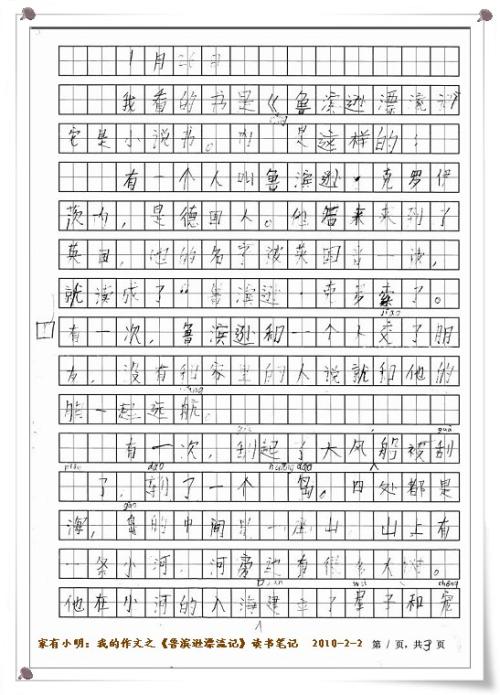 1月26日
我看的书是《鲁滨逊漂流记
它是小说书。 是这样的：
有一个人叫鲁滨逊·克罗伊
茨 ，是德国人。他 来到了
英国，他的名字被英国 一读，
就读成了“鲁滨逊· 索。
有一次，鲁滨逊和一个人交了朋 jiāo
友，没有和家里的人说就和他的
朋一起远航。
有一次，刮起了大风船被刮
了，到了一个 岛。四处都是
海，岛的中间是一座山，山上有
一条小河，河旁边有很多大树。
他在小河的入海 建立了 子和 chéng
家有小明：我的作文之《鲁滨逊漂流记》读书笔记 2010-2-2 第1页，共3页